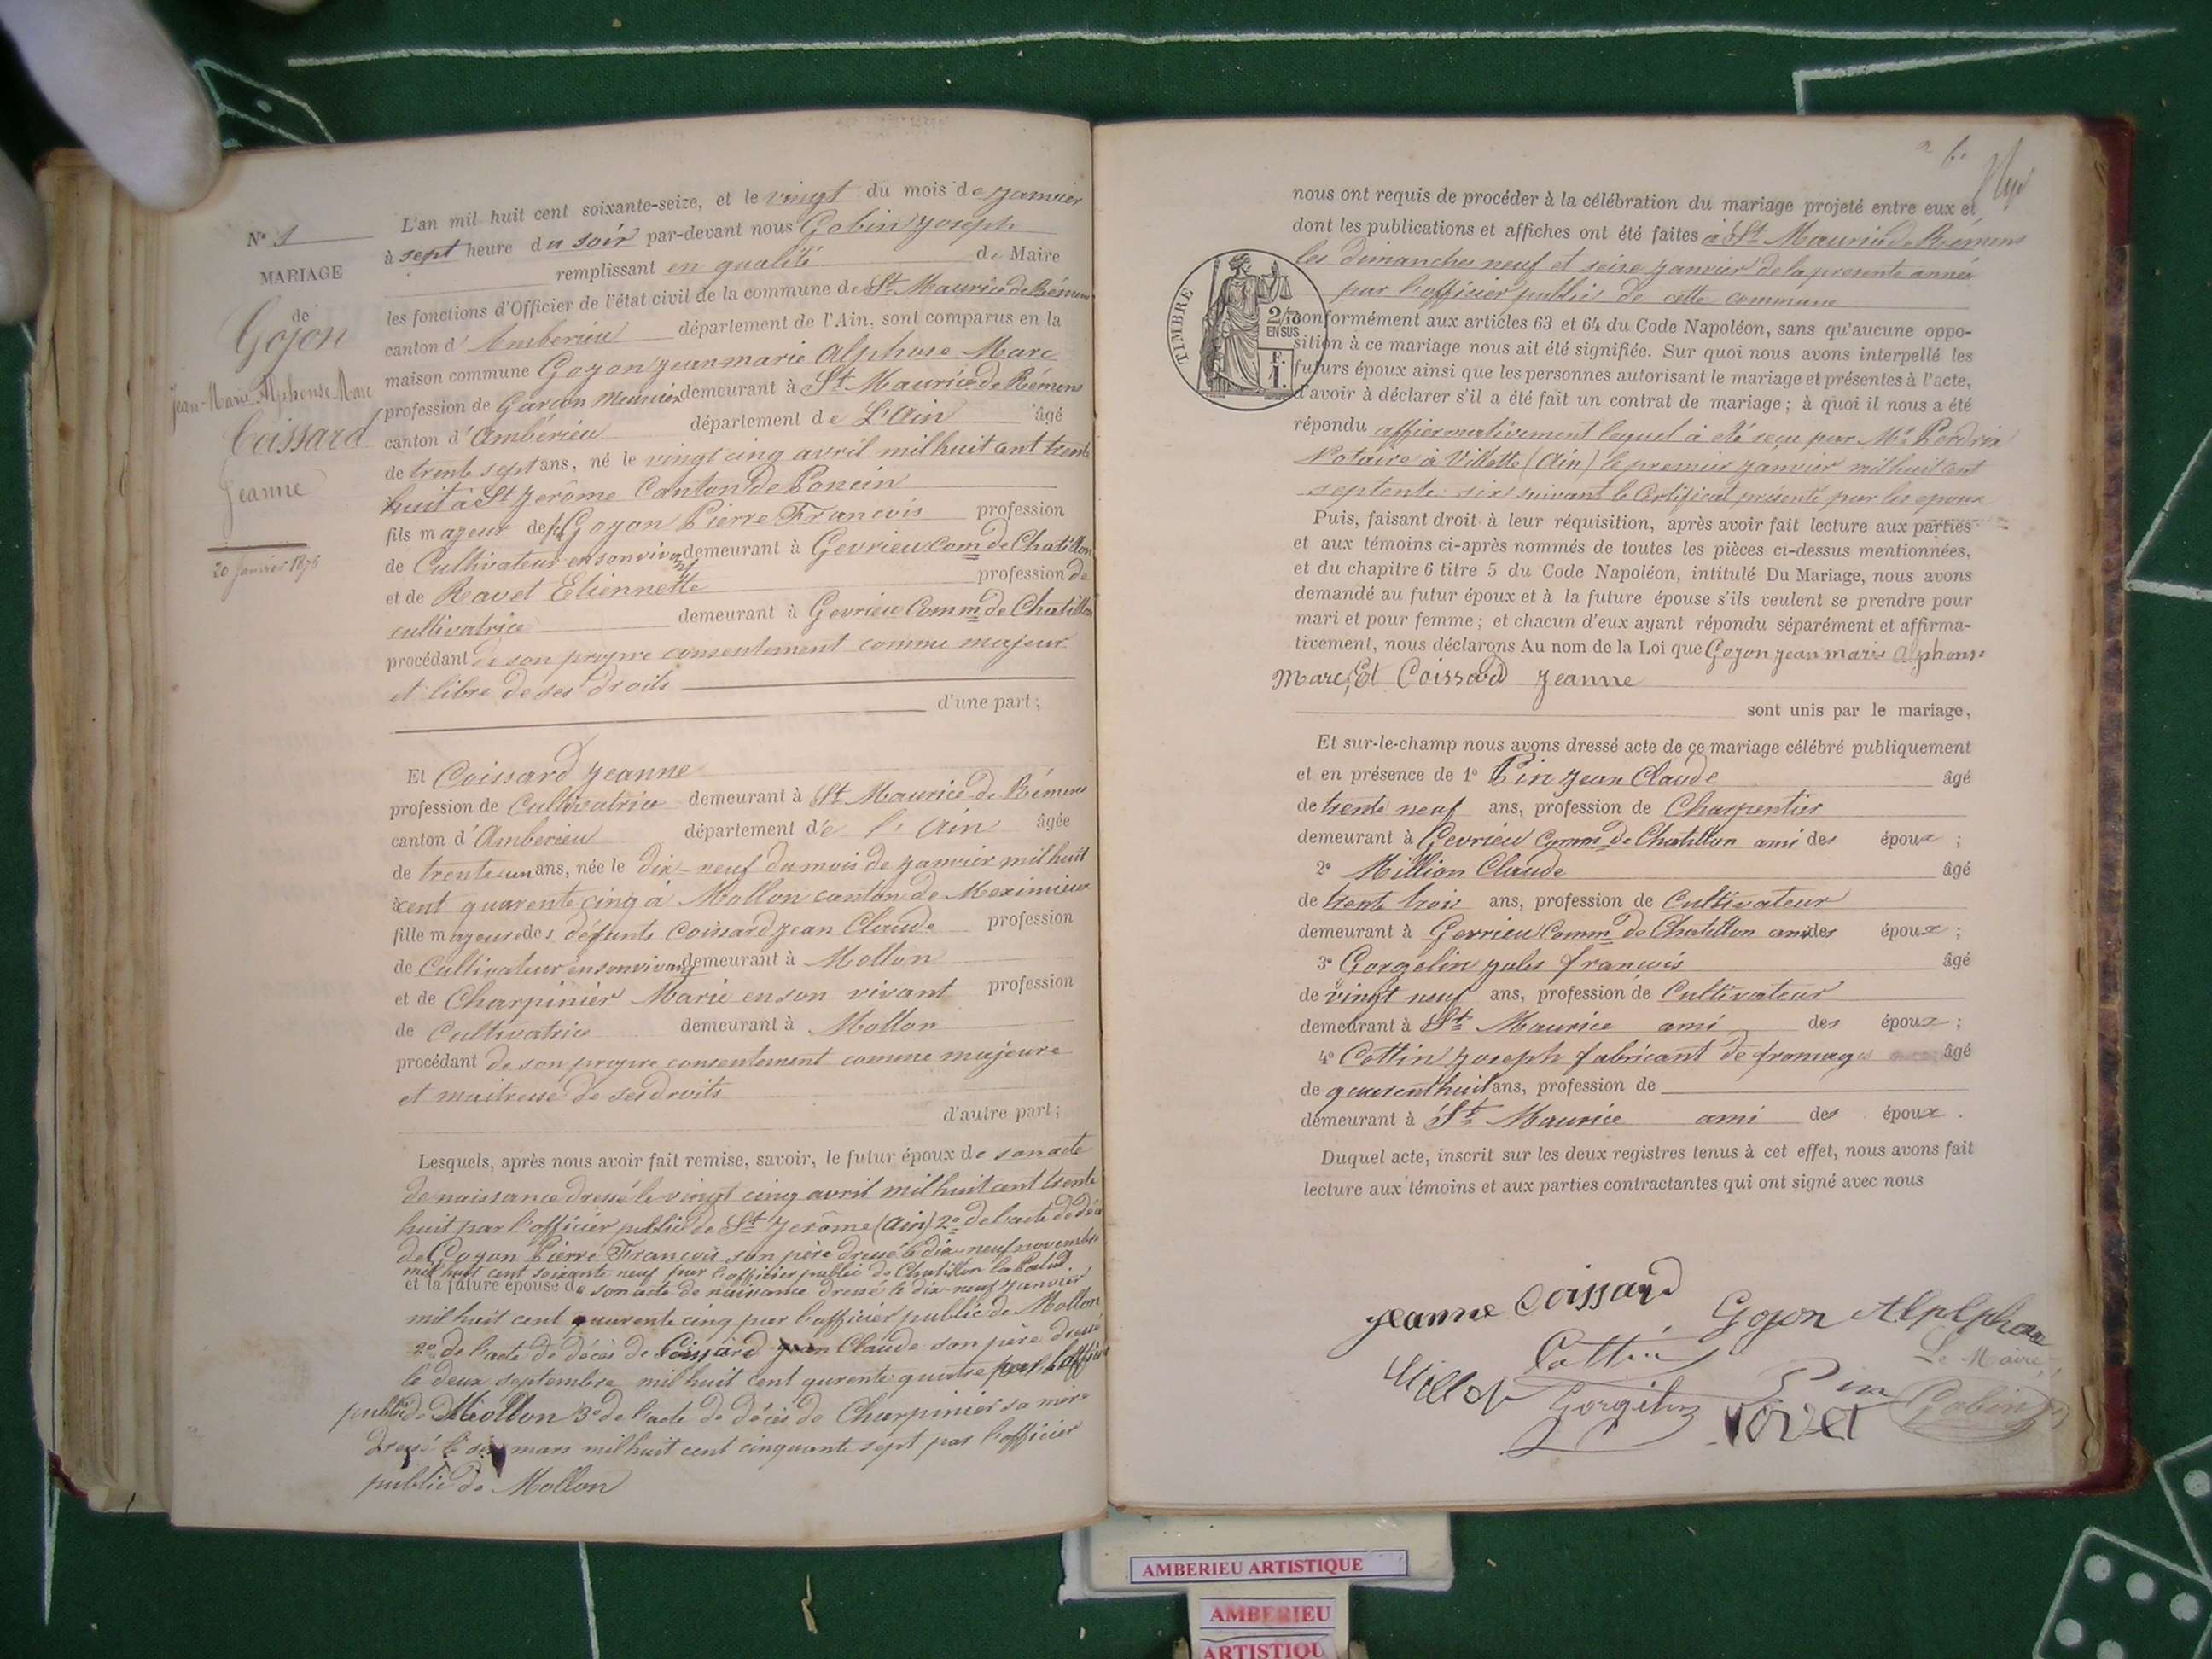 N° 1
MARIAGE
de
Gojon
Jean-Marie-Alphonse-Marc
Coissard
Jeanne
20 Janvier 1876
L'an mil huit cent soixante-seize, et le vingt du mois de janvier
à sept heure du soir par-devant nous Gobin Joseph
remplissant en qualité de Maire
les fonctions d'Officier de l'état civil de la commune de St Maurice de Rémens
canton d'Amberieu département de l'Ain, sont comparus en la
maison commune Goyon jean marie Alphonse Marc
profession de Garçon Meunier demeurant à St Maurice de Rémens
canton d'Ambérieu département de L'Ain âgé
de trente sept ans, né le vingt cinq avril mil huit cent trente
huit à St Jerôme Canton de Poncin
fils majeur de Goyon Pierre François profession
de Cultivateur en son vivant demeurant à Gevrieu com de Chatillon
et de Ravet Etiennette profession de
cultivatrice demeurant à Gevrieu Comm de Chatillon
procédant de son propre consentement comme majeur
et libre de ses droits
d'une part;
Et Coissard Jeanne
profession de Cultivatrice demeurant à St Maurice de Rémens
canton d'Amberieu département de l'Ain âgée
de trente un ans, née le dix-neuf du mois de janvier mil huit
cent quarente cinq à Mollon canton de Meximieux
fille majeure des défunts Coissard jean Claude profession
de Cultivateur en son vivant demeurant à Mollon
et de Charpinier Marie en son vivant profession
de Cultivatrice demeurant à Mollon
procédant de son propre consentement comme majeure
et maitresse de ses droits
d'autre part;
Lesquels, après nous avoir fait remise, savoir, le futur époux de son acte
de naissance dressé le vingt cinq avril mil huit cent trente
huit par l'officier public de St Jerôme (Ain) 2° de l'acte de décè
de Goyon Pierre François son père dressé le dix-neuf novembre
mil huit cent soixante neuf par l'officier public de Chatillon la Palud.
et la future épouse de son acte de naissance dressé le dix-neuf janvier
mil huit cent quarente cinq par l'officier public de Mollon
2° de l'acte de décès de Coissard jean Claude son père dressé
le deux septembre mil huit cent qurente quatre par l'officier
public de Mollon 3° de l'acte de décès de Charpinier sa mère
dressé le six mars mil huit cent cinquante sept par l'officier
public de Mollon
nous ont requis de procéder à la célébration du mariage projeté entre eux et
dont les publications et affiches ont été faites à St Maurice de Rémens
les dimanches neuf et seize janvier de la presente année
par l'officier public de cette commune
TIMBRE
2/10
EN SUS
F.
1.
conformément aux articles 63 et 64 du Code Napoléon, sans qu'aucune oppo-
sition à ce mariage nous ait été signifiée. Sur quoi nous avons interpellé les
futurs époux ainsi que les personnes autorisant le mariage et présentes à l'acte,
d'avoir à déclarer s'il a été fait un contrat de mariage; à quoi il nous a été
répondu affiermativement lequel à été reçu par Me Perdrix
Notaire à Villette (Ain) le premier janvier mil huit cent
septente six suivant le Certificat présenté par les epoux
Puis, faisant droit à leur réquisition, après avoir fait lecture aux parties
et aux témoins ci-après nommés de toutes les pièces ci-dessus mentionnées,
et du chapitre 6 titre 5 du Code Napoléon, intitulé Du Mariage, nous avons
demandé au futur époux et à la future épouse s'ils veulent se prendre pour
mari et pour femme; et chacun d'eux ayant répondu séparément et affirma-
tivement, nous déclarons Au nom de la Loi que Goyon jean marie Alphonse
Marc, Et Coissard Jeanne
sont unis par le mariage,
Et sur-le-champ nous avons dressé acte de ce mariage célébré publiquement
et en présence de 1° Pin Jean Claude âgé
de trente neuf ans, profession de Charpentier
demeurant à Gevrieu Comm de Chatillon ami des époux;
2° Million Claude âgé
de trente trois ans, profession de Cultivateur
demeurant à Gevrieu Comm de Chatillon ami des époux;
3° Gorgelin jules françois âgé
de vingt neuf ans, profession de Cultivateur
demeurant à St Maurice ami des époux;
4° Cottin Joseph fabricant de fromages âgé
de quarent huit ans, profession de
demeurant à St Maurice ami des époux.
Duquel acte, inscrit sur les deux registres tenus à cet effet, nous avons fait
lecture aux témoins et aux parties contractantes qui ont signé avec nous
Jeanne Coissard
Gojon
Cottin
Le Maire
Pin
Gorgelin
Gobin
AMBERIEU ARTISTIQUE
AMBERIEU
ARTISTIQU